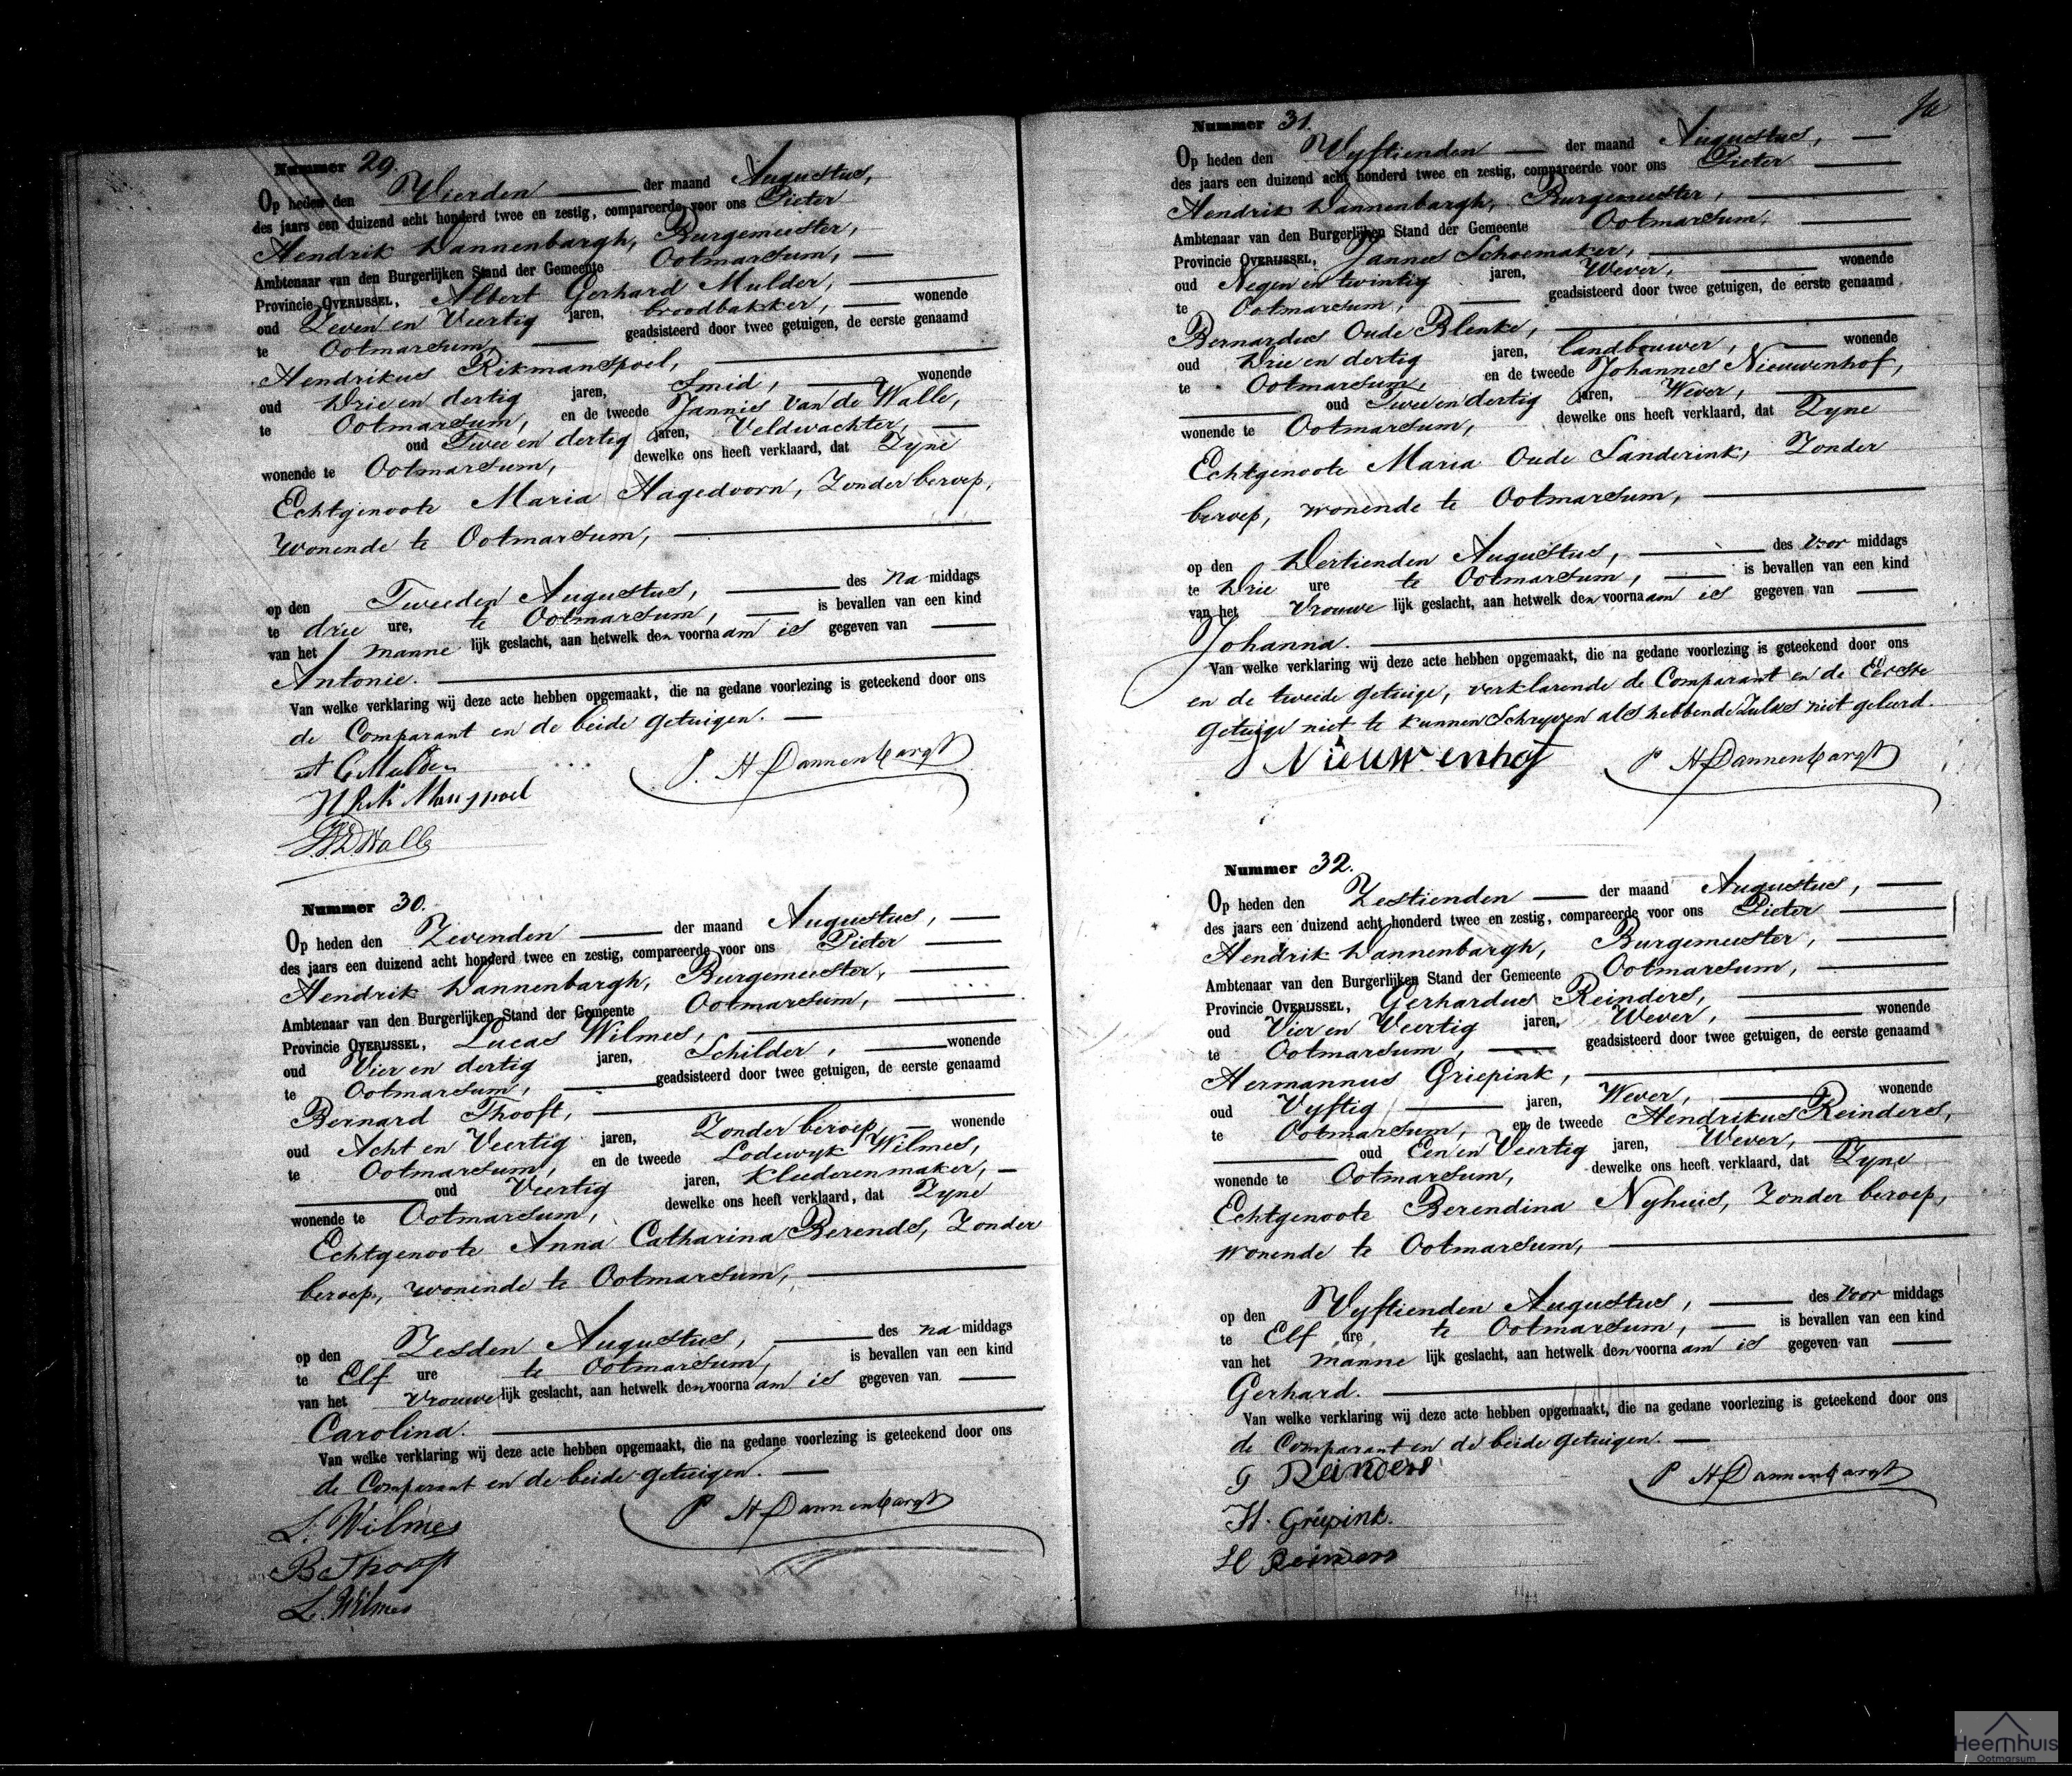 Nummer 29.
Op heden den Vierden der maand Augustus,
des jaars een duizend acht honderd twee en zestig, compareerde voor ons Pieter
Hendrik Dannenbargh, Burgemeester,
Ambtenaar van den Burgerlijken Stand der Gemeente Ootmarsum,
Provincie OVERIJSSEL, Albert Gerhard Mulder,
oud Zeven en Veertig jaren, broodbakker, wonende
te Ootmarsum, geadsisteerd door twee getuigen, de eerste genaamd
Hendrikus Rikmanspoel,
oud Drie en dertig jaren, Smid, wonende
te Ootmarsum, en de tweede Jannes van de Walle,
oud Twee en dertig jaren, Veldwachter,
wonende te Ootmarsum, dewelke ons heeft verklaard, dat Zyne
Echtgenoote Maria Hagedoorn, Zonder beroep,
wonende te Ootmarsum,
op den Tweeden Augustus, des na middags
te drie ure, te Ootmarsum, is bevallen van een kind
van het manne lijk geslacht, aan hetwelk den voornaam is gegeven van
Antonie.
Van welke verklaring wij deze acte hebben opgemaakt, die na gedane voorlezing is geteekend door ons
de Comparant en de beide getuigen.
A G Mulder
P. H Dannenbargh
H Rikmanspoel
Walle
Nummer 30.
Op heden den Zevenden der maand Augustus,
des jaars een duizend acht honderd twee en zestig, compareerde voor ons Pieter
Hendrik Dannenbargh, Burgemeester,
Ambtenaar van den Burgerlijken Stand der Gemeente Ootmarsum,
Provincie OVERIJSSEL, Lucas Wilmes,
oud Vier en dertig jaren, Schilder, wonende
te Ootmarsum, geadsisteerd door twee getuigen, de eerste genaamd
Bernard Thooft,
oud Acht en Veertig jaren, Zonder beroep, wonende
te Ootmarsum, en de tweede Lodewyk Wilmes,
oud Veertig jaren, Kleederenmaker,
wonende te Ootmarsum, dewelke ons heeft verklaard, dat Zyne
Echtgenoote Anna Catharina Berends, Zonder
beroep, wonende te Ootmarsum,
op den Zesden Augustus, des na middags
te Elf ure te Ootmarsum, is bevallen van een kind
van het Vrouwe lijk geslacht, aan hetwelk den voornaam is gegeven van
Carolina.
Van welke verklaring wij deze acte hebben opgemaakt, die na gedane voorlezing is geteekend door ons
de Comparant en de beide getuigen.
L. Wilmes
P H Dannenbargh
B Thooft
L. Wilmes
Nummer 31.
Op heden den Vyftienden der maand Augustus,
des jaars een duizend acht honderd twee en zestig, compareerde voor ons Pieter
Hendrik Dannenbargh, Burgemeester,
Ambtenaar van den Burgerlijken Stand der Gemeente Ootmarsum,
Provincie OVERIJSSEL, Jannes Schoemaker,
oud Negen en twintig jaren, Wever, wonende
te Ootmarsum, geadsisteerd door twee getuigen, de eerste genaamd
Bernardus Oude Blenke,
oud Drie en dertig jaren, landbouwer, wonende
te Ootmarsum, en de tweede Johannes Nieuwenhof,
oud Twee en dertig jaren, Wever,
wonende te Ootmarsum, dewelke ons heeft verklaard, dat Zyne
Echtgenoote Maria Oude Sanderink, Zonder
beroep, wonende te Ootmarsum,
op den Dertienden Augustus, des voor middags
te Drie ure te Ootmarsum, is bevallen van een kind
van het Vrouwe lijk geslacht, aan hetwelk den voornaam is gegeven van
Johanna.
Van welke verklaring wij deze acte hebben opgemaakt, die na gedane voorlezing is geteekend door ons
en de tweede getuige, verklarende de Comparant en de Eerste
getuige niet te kunnen Schryven als hebbende zulks niet geleerd.
J Nieuwenhof
P H Dannenbargh
Nummer 32.
Op heden den Zestienden der maand Augustus,
des jaars een duizend acht honderd twee en zestig, compareerde voor ons Pieter
Hendrik Dannenbargh, Burgemeester,
Ambtenaar van den Burgerlijken Stand der Gemeente Ootmarsum,
Provincie OVERIJSSEL, Gerhardus Reinders,
oud Vier en Veertig jaren, Wever, wonende
te Ootmarsum, geadsisteerd door twee getuigen, de eerste genaamd
Hermannus Griepink,
oud Vyftig jaren, Wever, wonende
te Ootmarsum, en de tweede Hendrikus Reinders,
oud Een en Veertig jaren, Wever,
wonende te Ootmarsum, dewelke ons heeft verklaard, dat Zyne
Echtgenoote Berendina Nyhuis, Zonder beroep,
wonende te Ootmarsum,
op den Vyftienden Augustus, des voor middags
te Elf ure, te Ootmarsum, is bevallen van een kind
van het manne lijk geslacht, aan hetwelk den voornaam is gegeven van
Gerhard.
Van welke verklaring wij deze acte hebben opgemaakt, die na gedane voorlezing is geteekend door ons
de Comparant en de beide getuigen.
G Reinders
P H Dannenbargh
H. Griepink.
H Reinders
Heemhuis
Ootmarsum